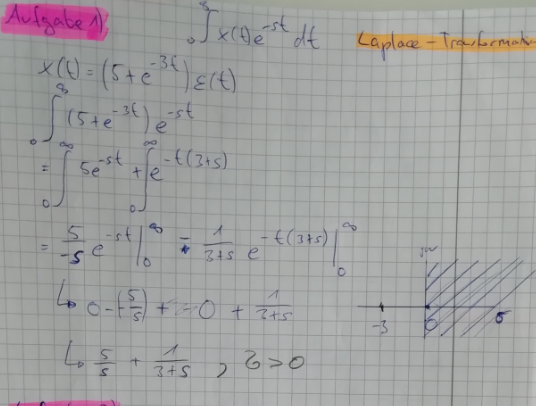 Aufgabe 1)
∫₀^∞ x(t)e^{-st} dt
Laplace-Transformation
x(t) = (5+e^{-3t}) ε(t)
∫₀^∞ (5+e^{-3t}) e^{-st}
= ∫₀^∞ 5e^{-st} + ∫₀^∞ e^{-t(3+s)}
= 5/-s e^{-st} |₀^∞ - 1/(3+s) e^{-t(3+s)} |₀^∞
jω
↳ 0-(-5/s) + -0 + 1/(3+s)
-3 0 σ
↳ 5/s + 1/(3+s) , σ>0